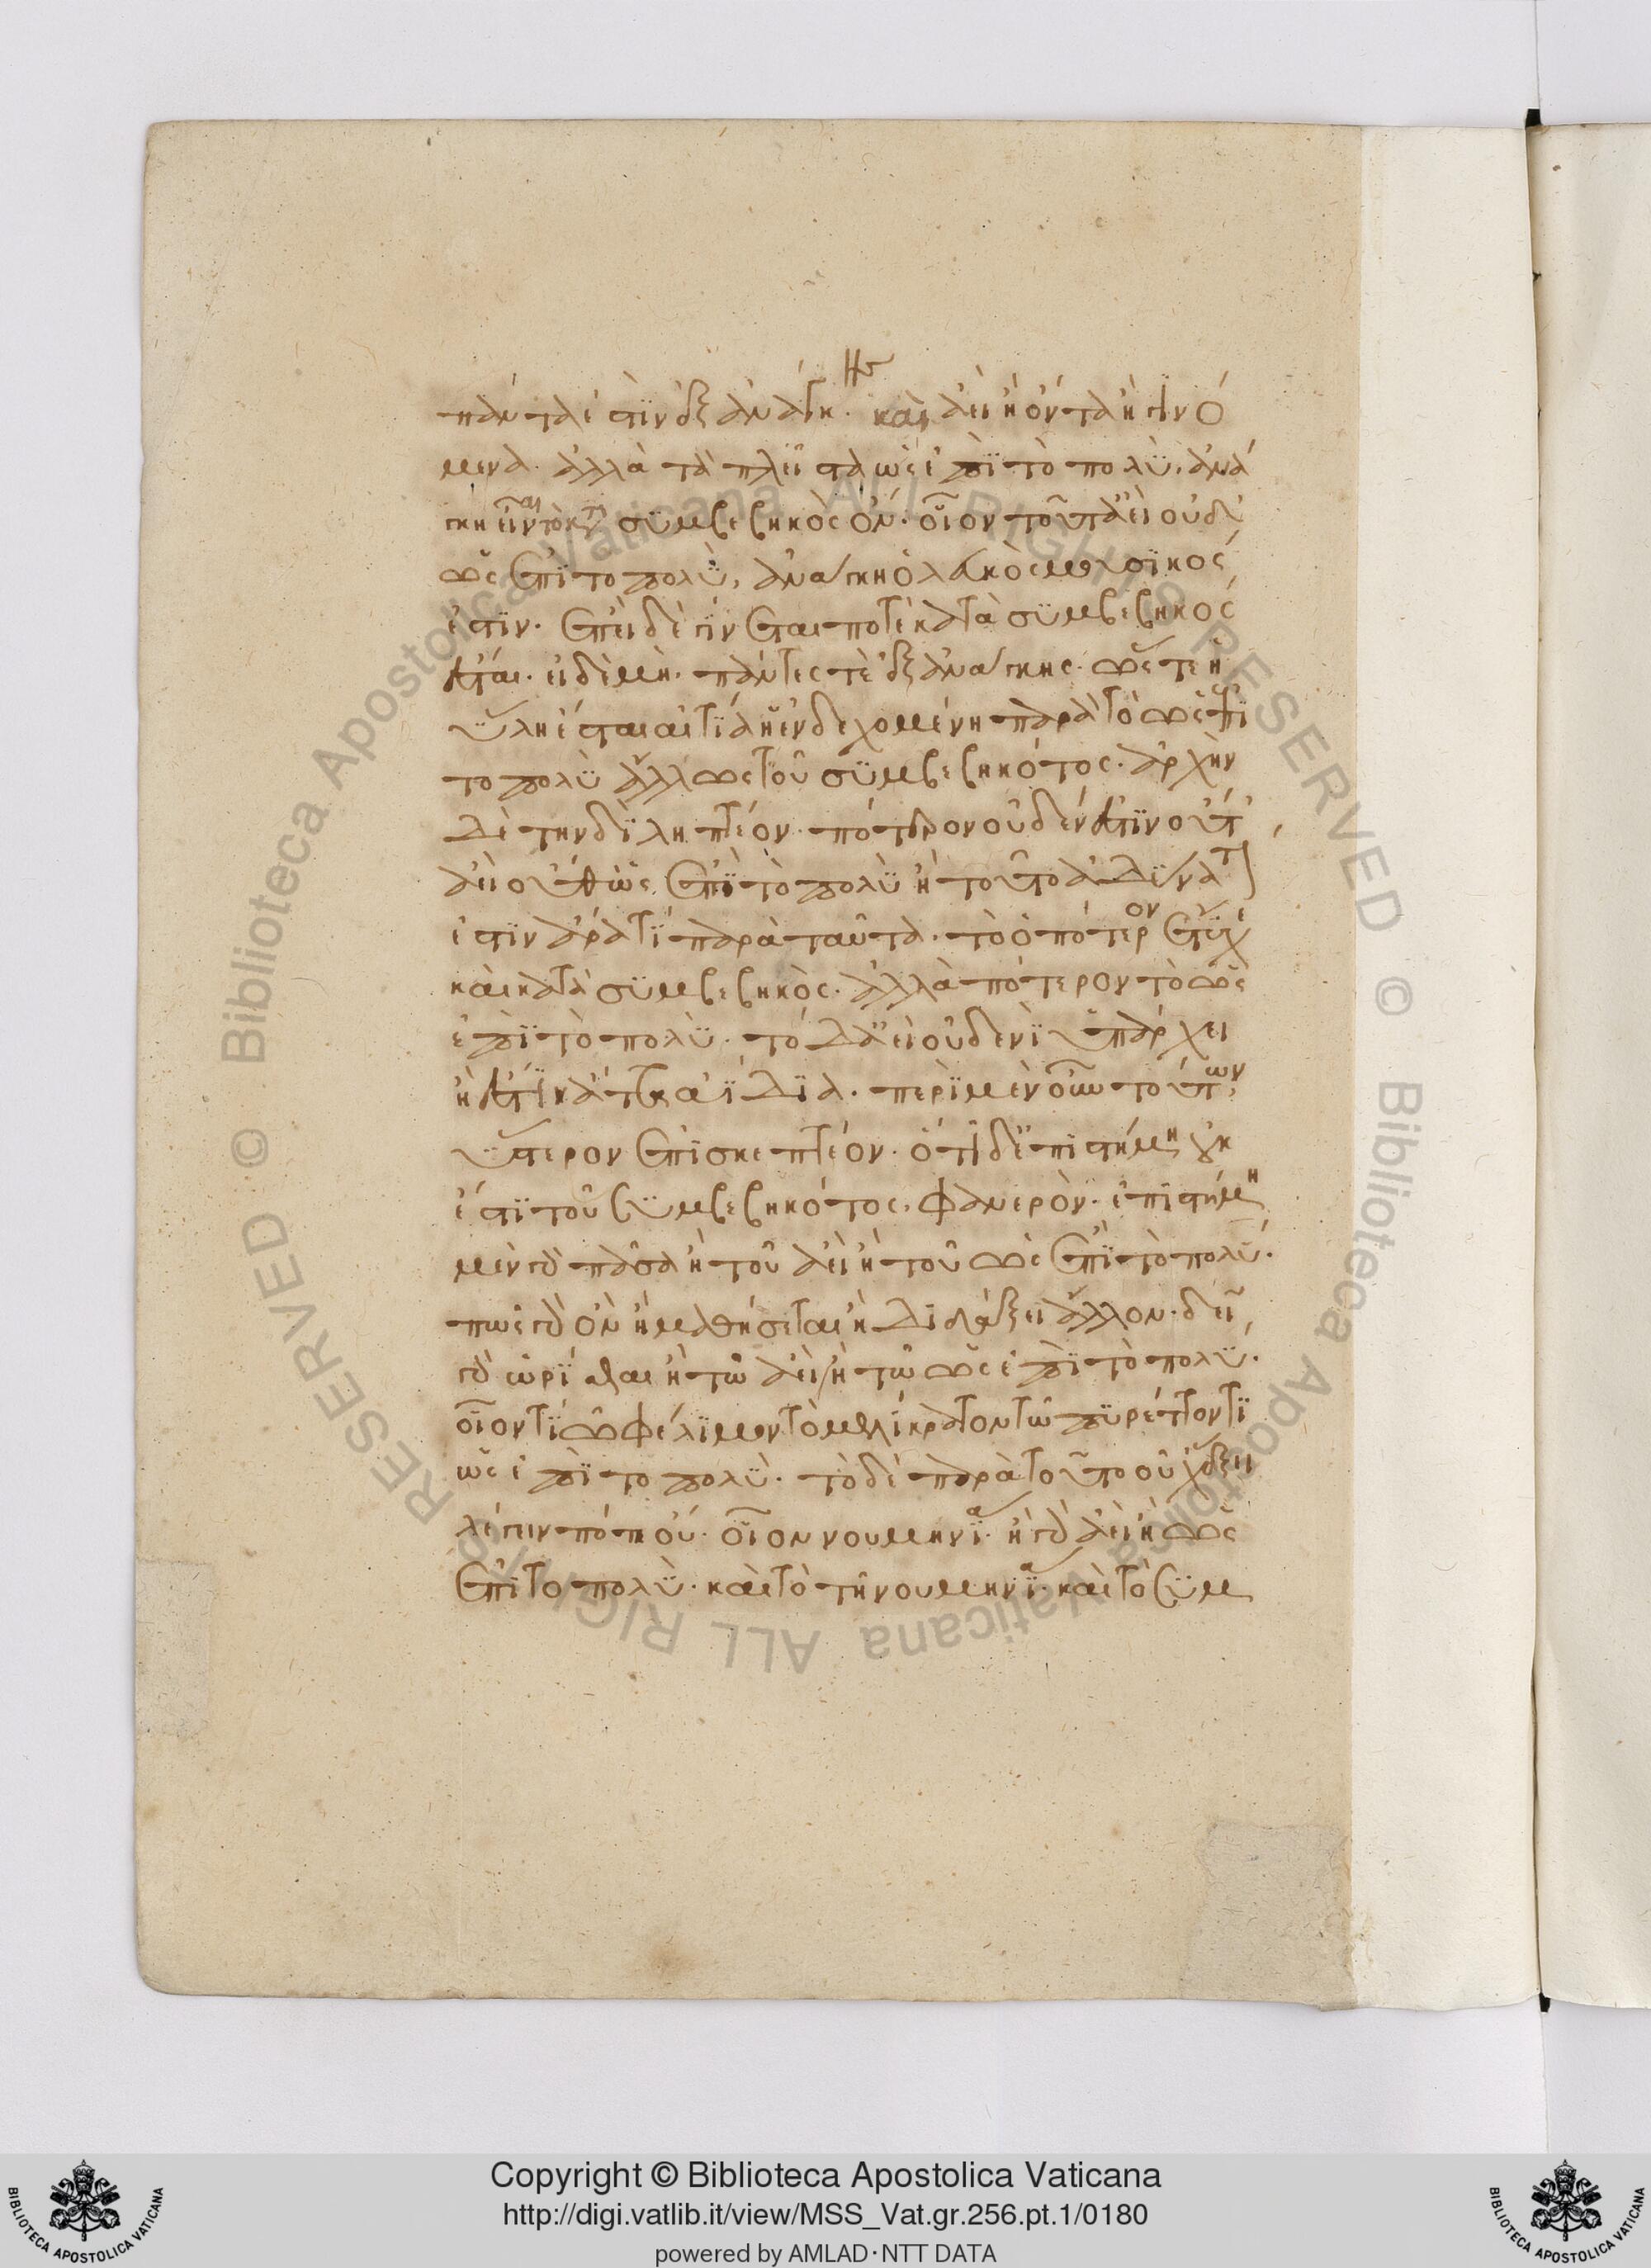 πάντα ἐστὶν ἐξ ἀνάγκης καὶ ἀεὶ ἢ ὄντα ἢ γινό
μενα. ἀλλὰ τὰ πλεῖστα ὡς ἐπὶ τὸ πολύ. ἀνά
γκη εἶναι τὸ κατὰ συμβεβηκὸς ὄν. οἷον τοῦτ' ἀεὶ οὐδ'
ὡς ἐπὶ το πολὺ, ἀνάγκη ὁ λευκὸς μουσικός
ἐστιν. ἐπεὶ δὲ γίνεται ποτὲ κατὰ συμβεβηκὸς
ἔσται. εἰ δὲ μὴ. πάντες τε ἐξ ἀνάγκης. ὥστε ἡ
ὕλη ἔσται αἰτία ἡ ἐνδεχομένη παρὰ τὸ ὡς ἐπὶ
το πολὺ ἄλλως τοῦ συμβεβηκότος. ἀρχὴν
δὲ τηνδὶ ληπτέον. πότερον οὐδέν ἐστιν οὔτ'
ἀεὶ οὔθ' ὡς ἐπὶ τὸ πολὺ ἢ τοῦτο ἀδύνατον
ἔστιν ἄρα τί παρὰ ταῦτα. τὸ ὁπότερον ἔτυχε
καὶ κατὰ συμβεβηκὸς. ἀλλὰ πότερον τὸ ὡς
ἐπὶ τὸ πολὺ. τὸ δ' ἀεὶ οὐδενὶ ὑπάρχει
ἢ ἔστιν ἄττα ἀΐδια. περὶ μὲν οὖν τούτων
ὕστερον ἐπισκεπτέον. ὅτι δ' ἐπιστήμη οὐκ
ἔστι τοῦ συμβεβηκότος, φανερὸν. ἐπιστήμη
μὲν γὰρ πᾶσα ἢ τοῦ ἀεὶ ἢ τοῦ ὡς ἐπὶ τὸ πολύ.
πῶς γὰρ ὂν ἢ μαθήσεται ἢ διδάξει ἄλλον. δεῖ
γὰρ ὡρίσθαι ἢ τῷ ἀεὶ ἢ τῷ ὡς ἐπὶ τὸ πολὺ.
οἷον τί ὠφέλιμον τὸ μελίκρατον τῷ πυρέττοντι
ὡς ἐπὶ το πολὺ. τὸ δὲ παρὰ τοῦτο οὐχ ἕξει
λέγειν πότε οὔ. οἷον νουμηνίᾳ. ἢ γὰρ ἀεὶ ἢ ὡς
ἐπὶ το πολὺ. καὶ τὸ τῇ νουμηνίᾳ. καὶ τὸ συμ
Copyright © Biblioteca Apostolica Vaticana
http://digi.vatlib.it/view/MSS_Vat.gr.256.pt.1/0180
powered by AMLAD·NTT DATA